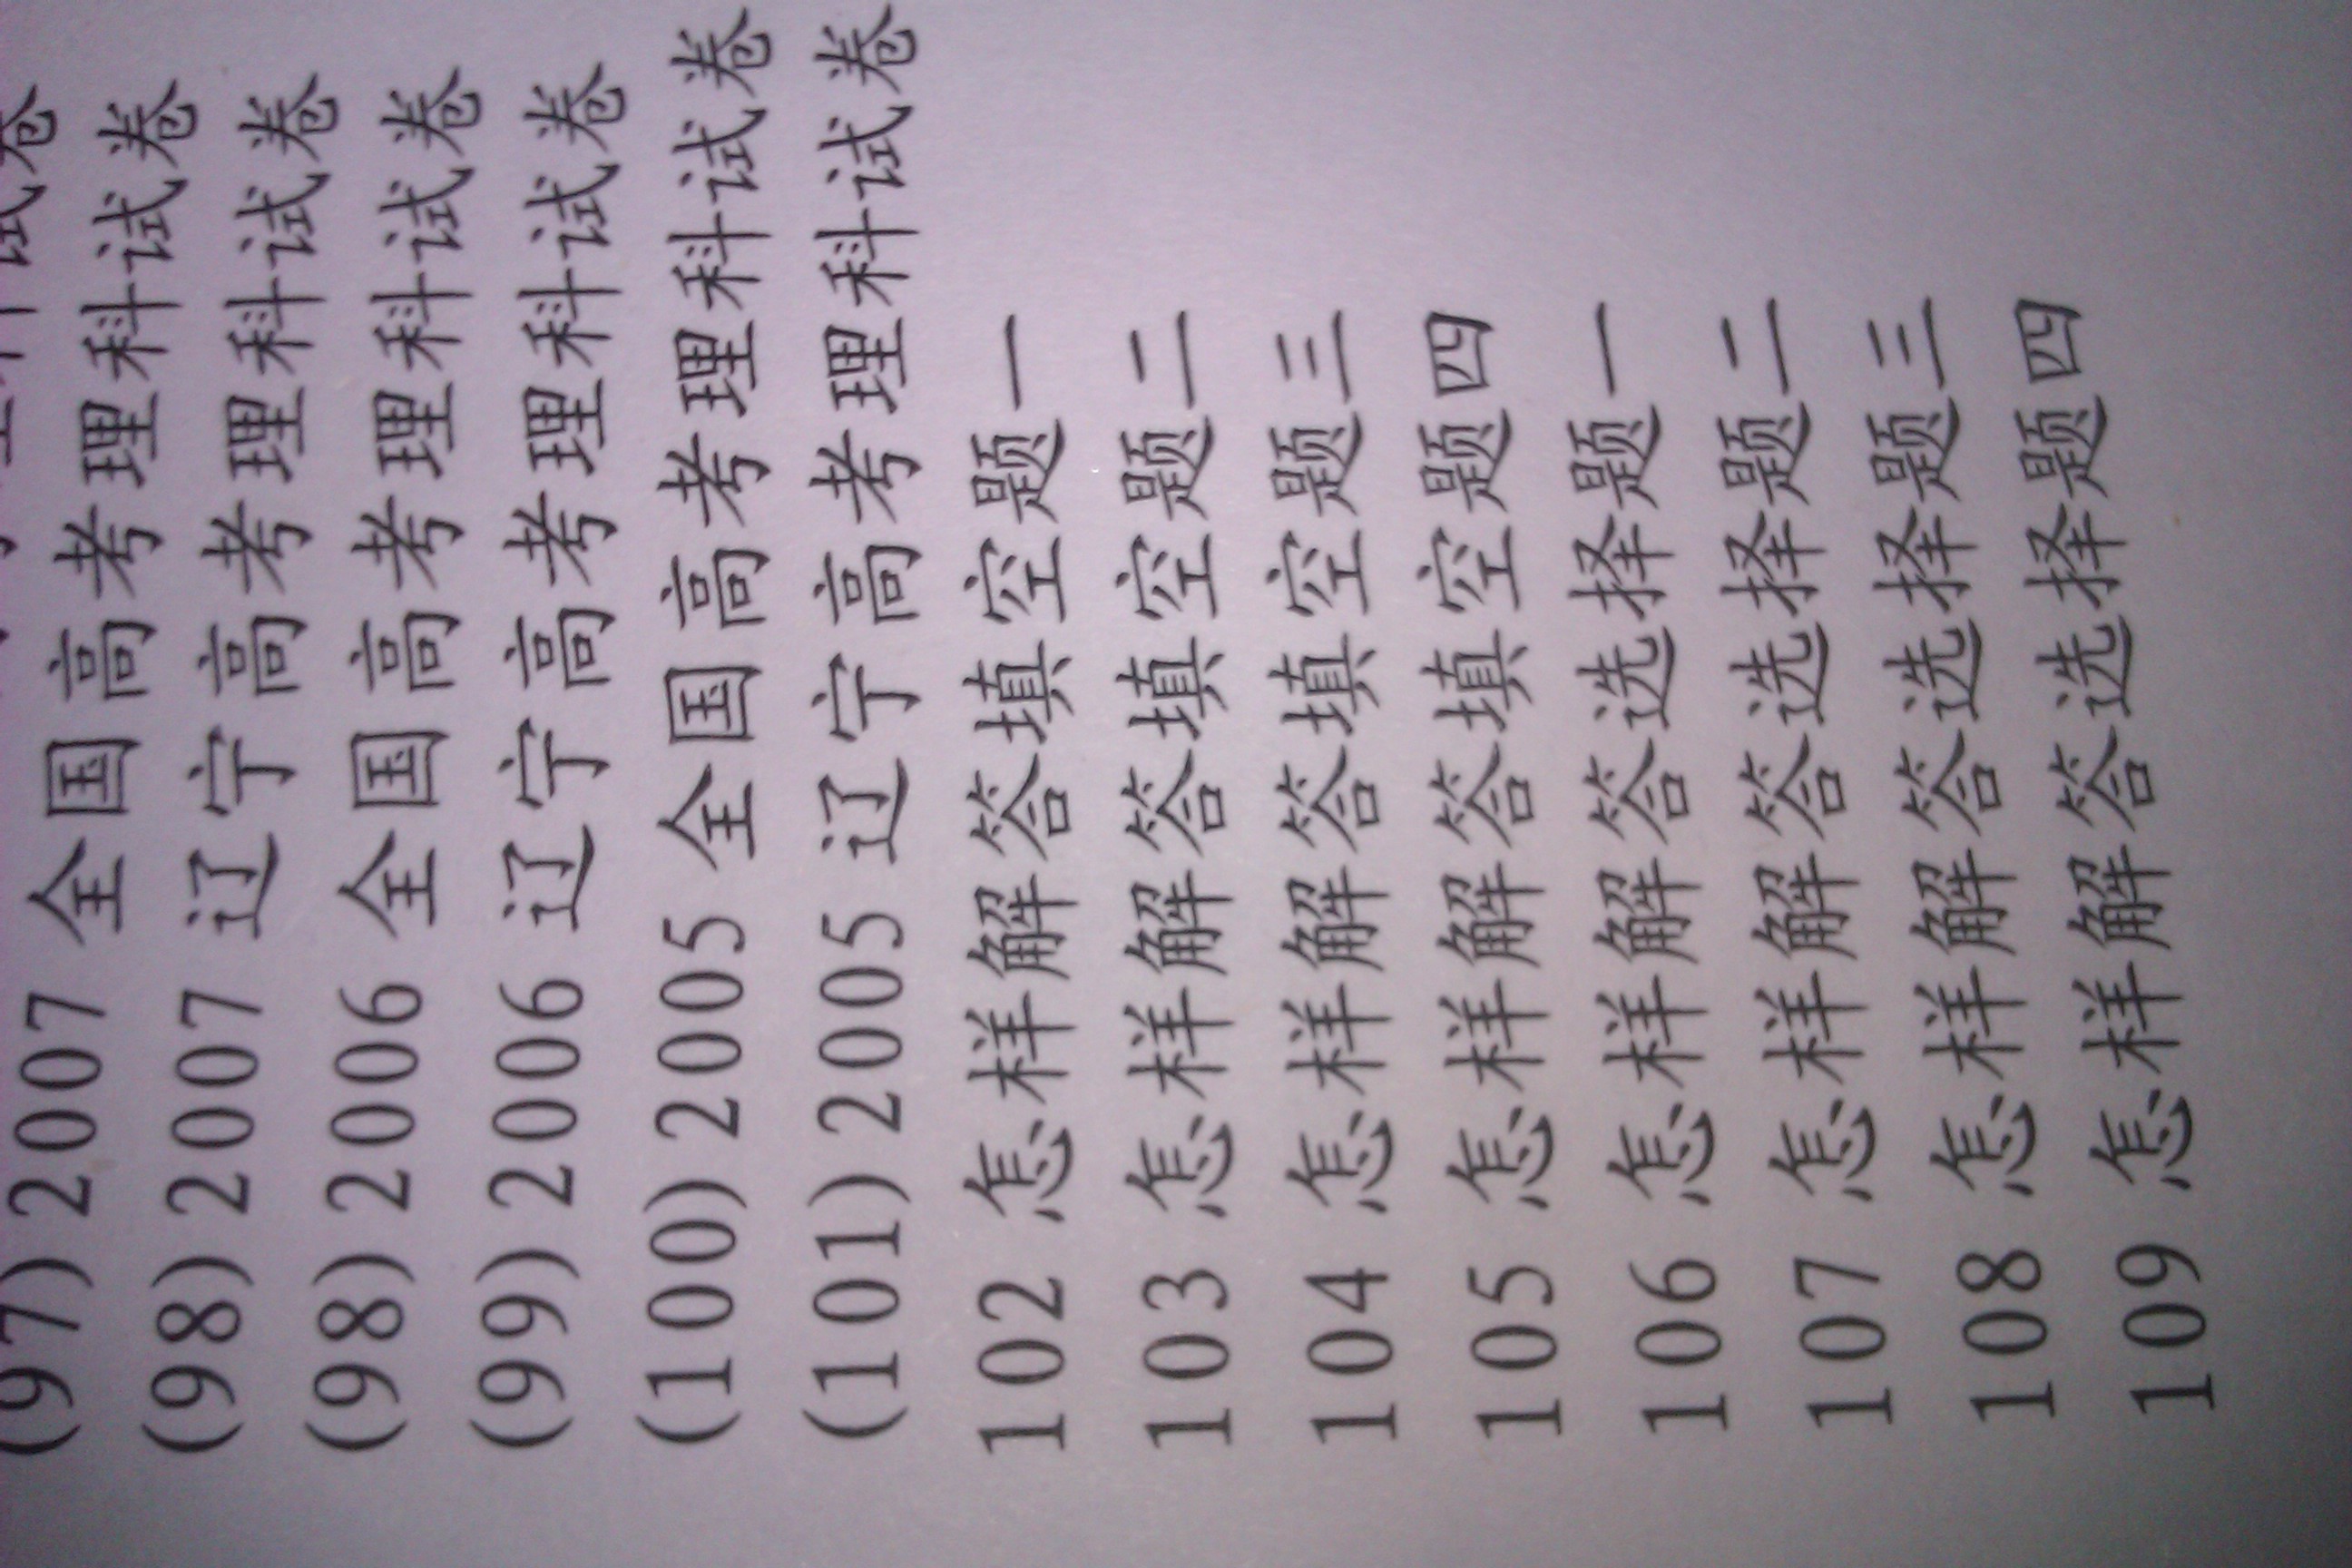 (97)2007 全国高考理科试卷
(98)2007 辽宁高考理科试卷
(98)2006 全国高考理科试卷
(99)2006 辽宁高考理科试卷
(100)2005 全国高考理科试卷
(101)2005 辽宁高考理科试卷
102 怎样解答填空题一
103 怎样解答填空题二
104 怎样解答填空题三
105 怎样解答填空题四
106 怎样解答选择题一
107 怎样解答选择题二
108 怎样解答选择题三
109 怎样解答选择题四